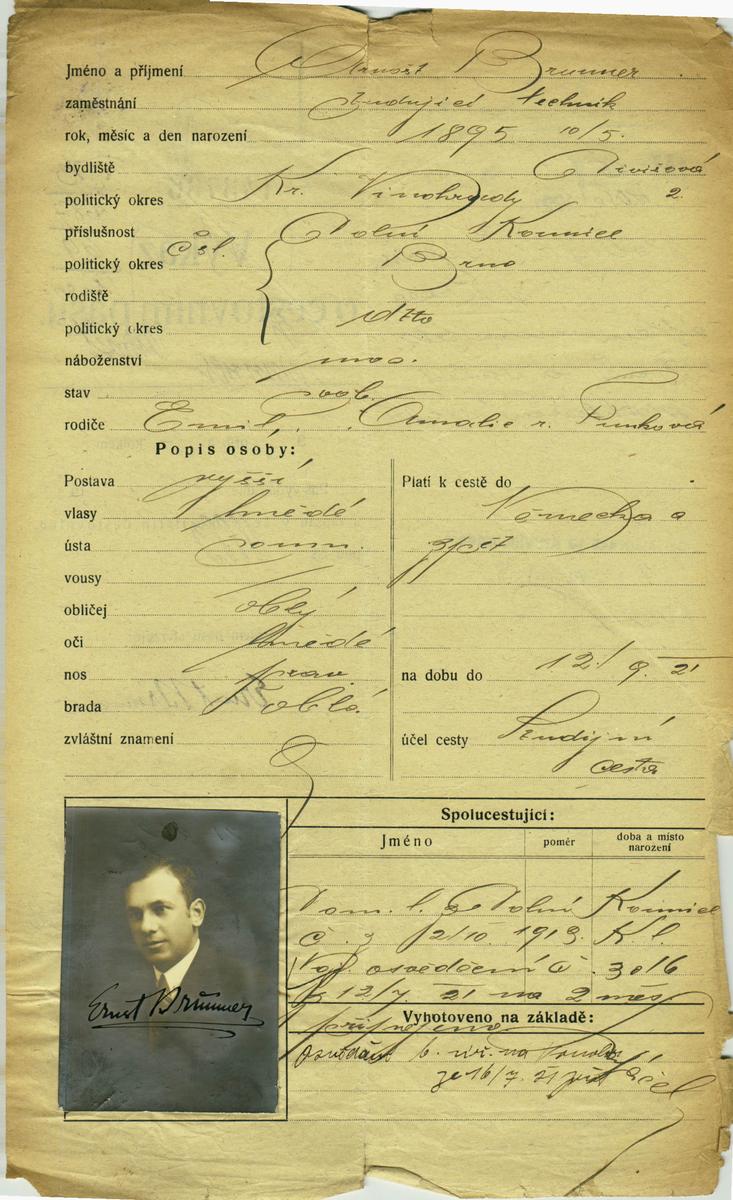 Jméno a příjmení Arnošt Brunner
zaměstnání studující technik
rok, měsíc a den narození 1895 10/5.
bydliště Divišova
politický okres Kr. Vinohrady 2.
příslušnost Dolní Kounice
Čsl.
politický okres Brno
rodiště
politický okres dtto
náboženství mos.
stav svob.
rodiče Emil, Amalie r. Funková
Popis osoby:
Postava vyšší
vlasy hnědé
ústa soum.
vousy
obličej oblý
oči hnědé
nos prav.
brada oblá
zvláštní znamení
Platí k cestě do
Německa a
zpět
na dobu do 12/9. 21
účel cesty Studijní
cesta
Spolucestující:
Jméno poměr doba a místo narození
Dom. l. z Dolní Kounice
č. z 2/10. 1913. Kl.
Voj. osvědčení č. 3016
z 12/7. 21 na 2 měs.
připojeno
Vyhotoveno na základě:
ze 16/7. 21
Ernst Brunner